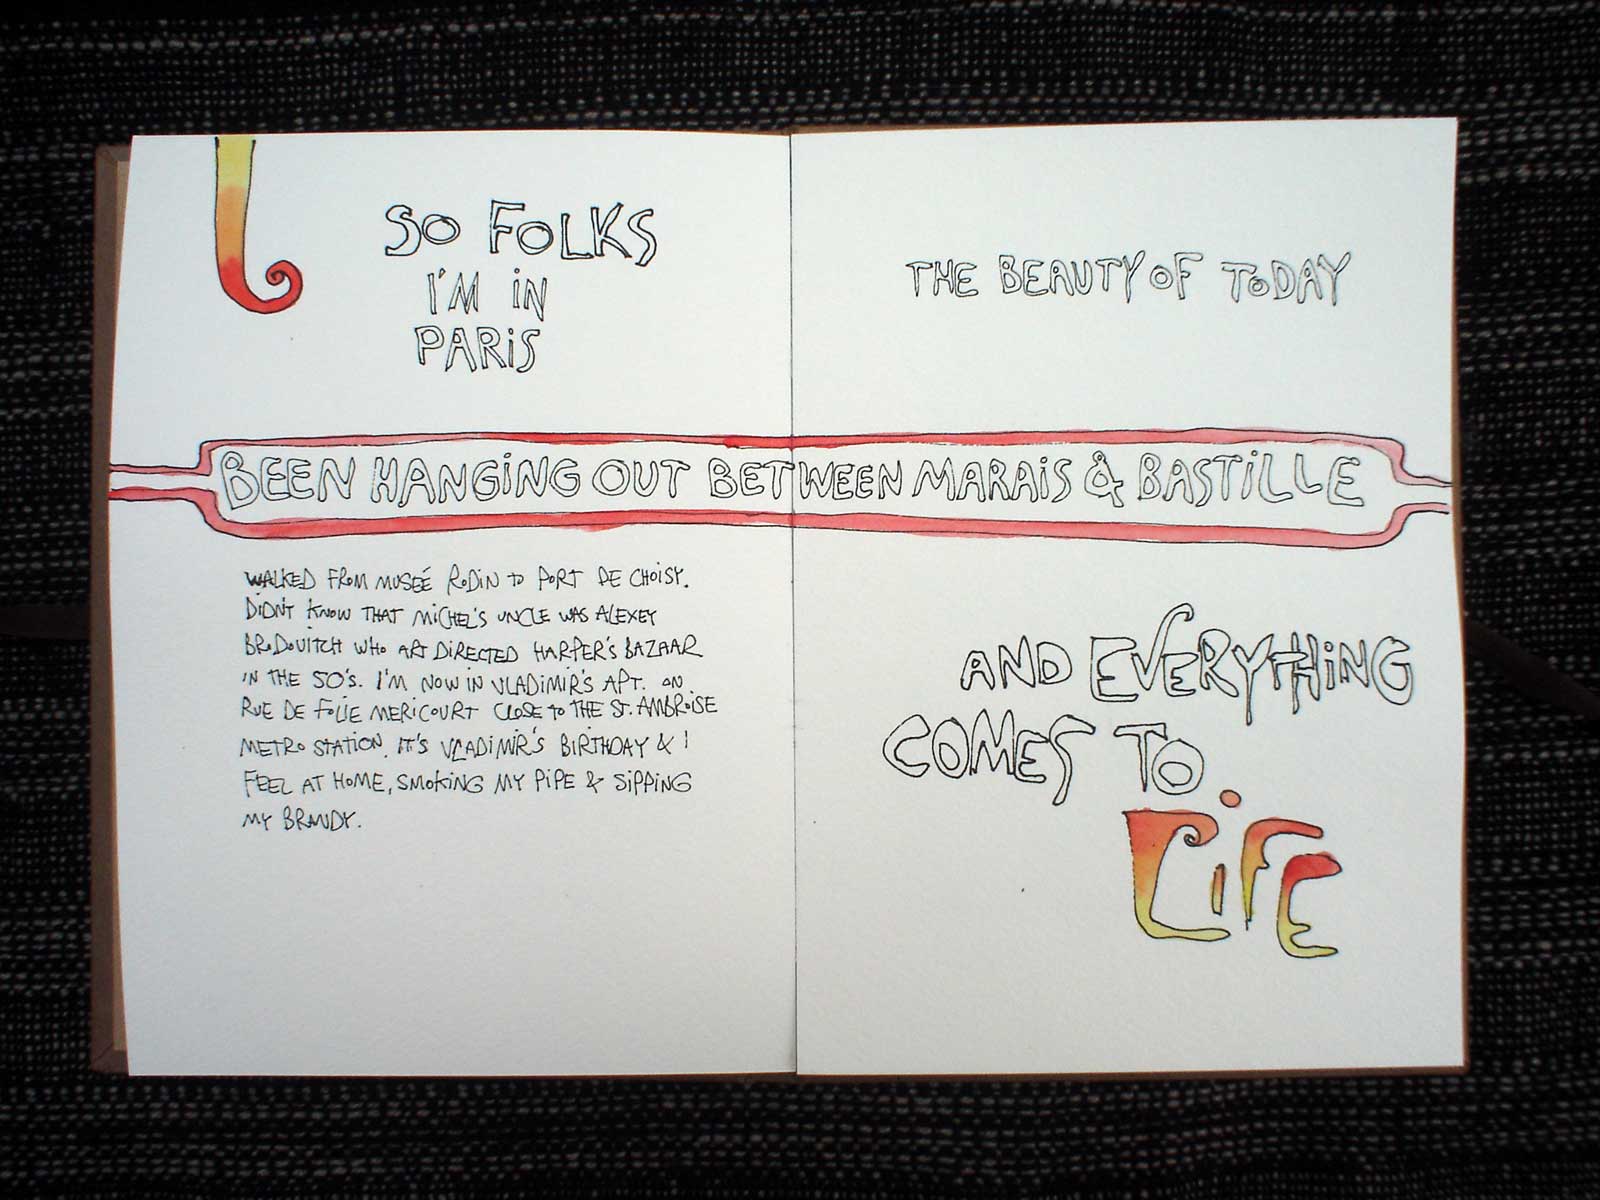 SO FOLKS
I'M IN
PARIS
THE BEAUTY OF TODAY
BEEN HANGING OUT BETWEEN MARAIS & BASTILLE
WALKED FROM MUSEÉ RODIN TO PORT DE CHOISY.
DIDN'T KNOW THAT MICHEL'S UNCLE WAS ALEXEY
BRODOVITCH WHO ART DIRECTED HARPER'S BAZAAR
IN THE 50'S. I'M NOW IN VLADIMIR'S APT. ON
RUE DE FOLIE MERICOURT CLOSE TO THE ST. AMBROISE
METRO STATION. IT'S VLADIMIR'S BIRTHDAY & I
FEEL AT HOME, SMOKING MY PIPE & SIPPING
MY BRANDY.
AND EVERYTHING
COMES TO
LIFE